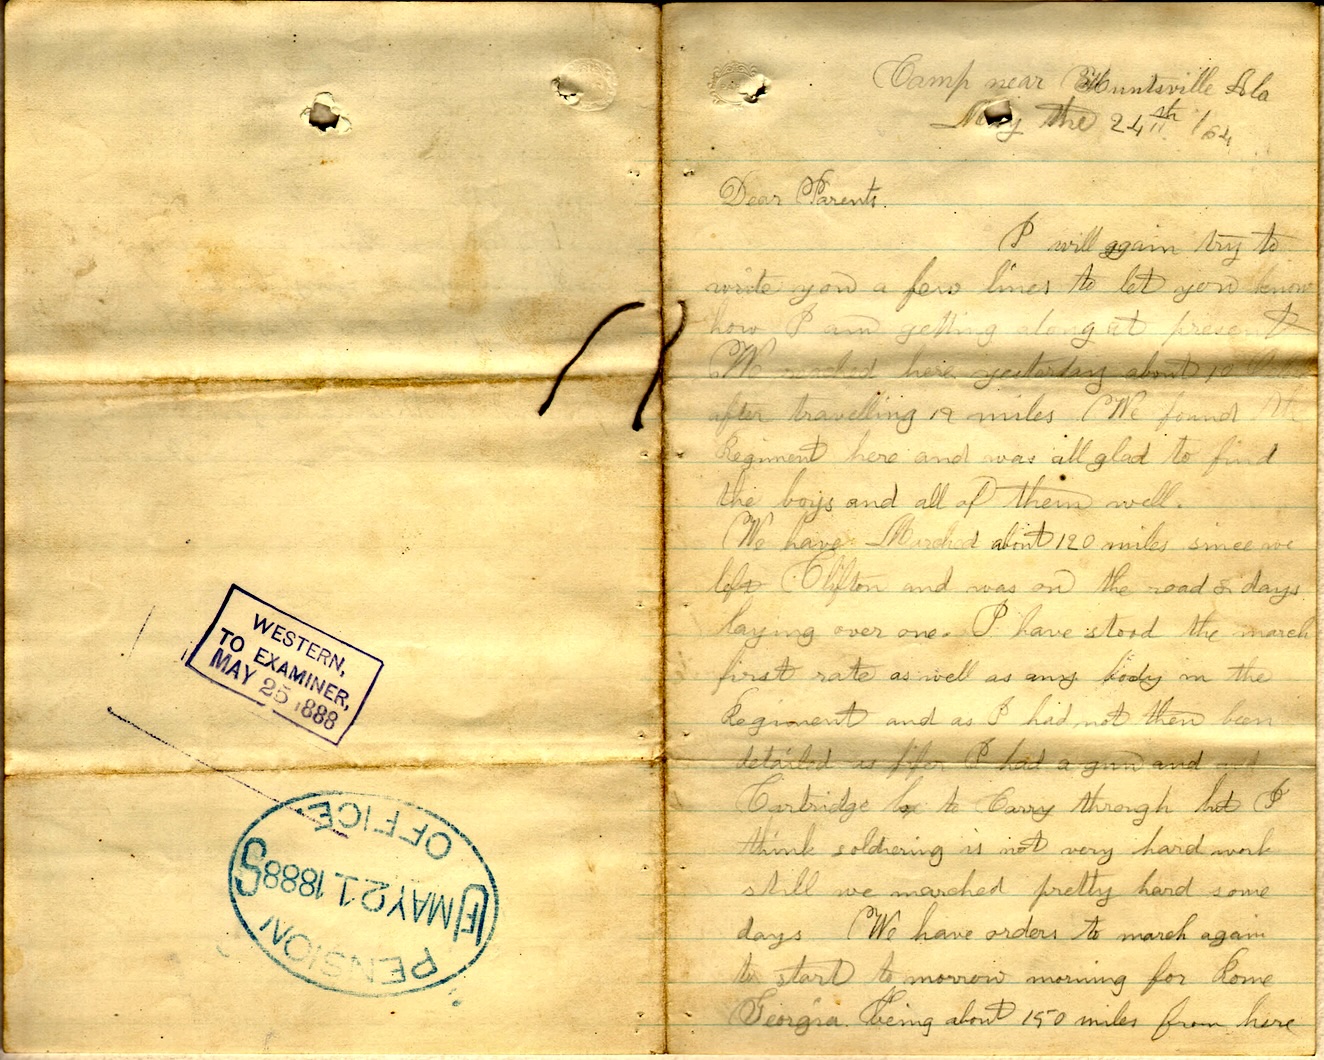 WESTERN,
TO EXAMINER,
MAY 25 1888
U.S. PENSION OFFICE
MAY 21 1888
Camp near Huntsville Ala
May the 24th /64
Dear Parents.
I will again try to
write you a few lines to let you know
how I am getting along at present
We reached here yesterday about 10
after travelling 12 miles We found the
Regiment here and was all glad to find
the boys and all of them well.
We have Marched about 120 miles since we
left Clifton and was on the road 8 days
laying over one. I have stood the march
first rate as well as any body in the
Regiment and as I had not then been
detailed as fifer I had a gun and
Cartridge box to Carry through but I
think soldiering is not very hard work
still we marched pretty hard some
days We have orders to march again
to start to morrow morning for Rome
Georgia. being about 150 miles from here